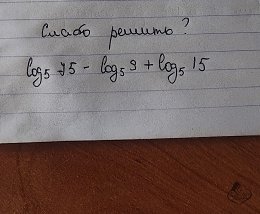 Слабо решить?
log₅ 75 - log₅ 9 + log₅ 15